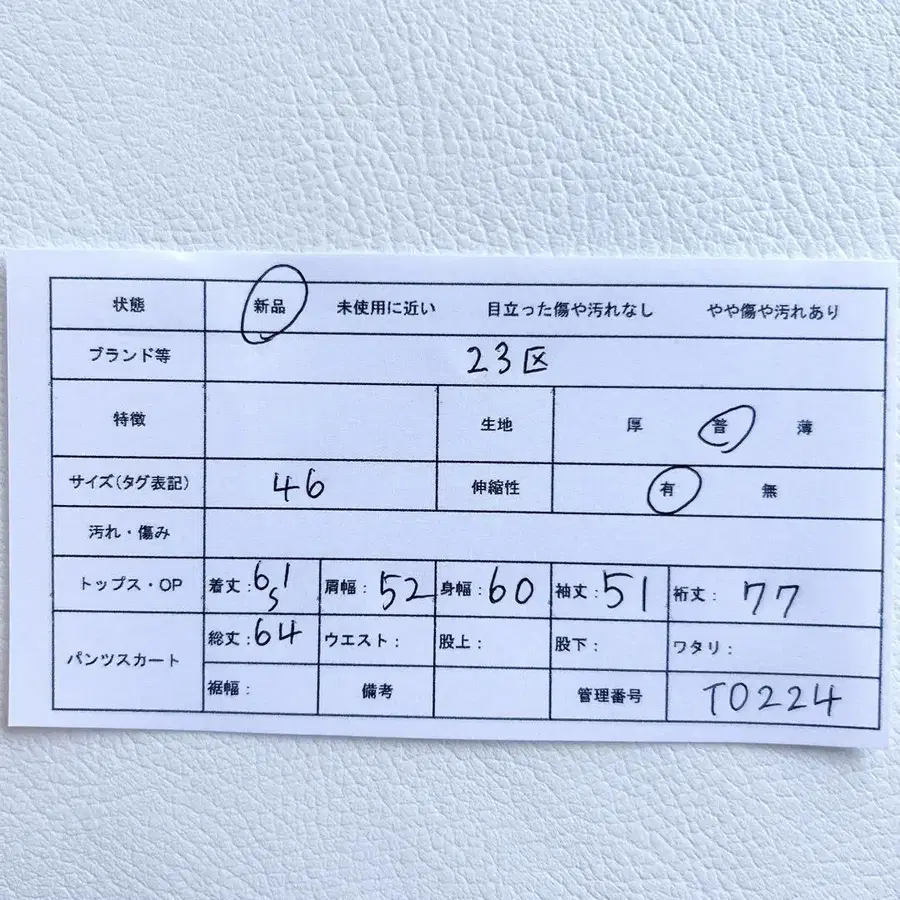 状態 新品 未使用に近い 目立った傷や汚れなし やや傷や汚れあり
ブランド等 23区
特徴 生地 厚 普 薄
サイズ(タグ表記) 46 伸縮性 有 無
汚れ・傷み
トップス・OP 着丈:61 肩幅:52 身幅:60 袖丈:51 裄丈:77
S
パンツスカート 総丈:64 ウエスト: 股上: 股下: ワタリ:
裾幅: 備考 管理番号 T0224